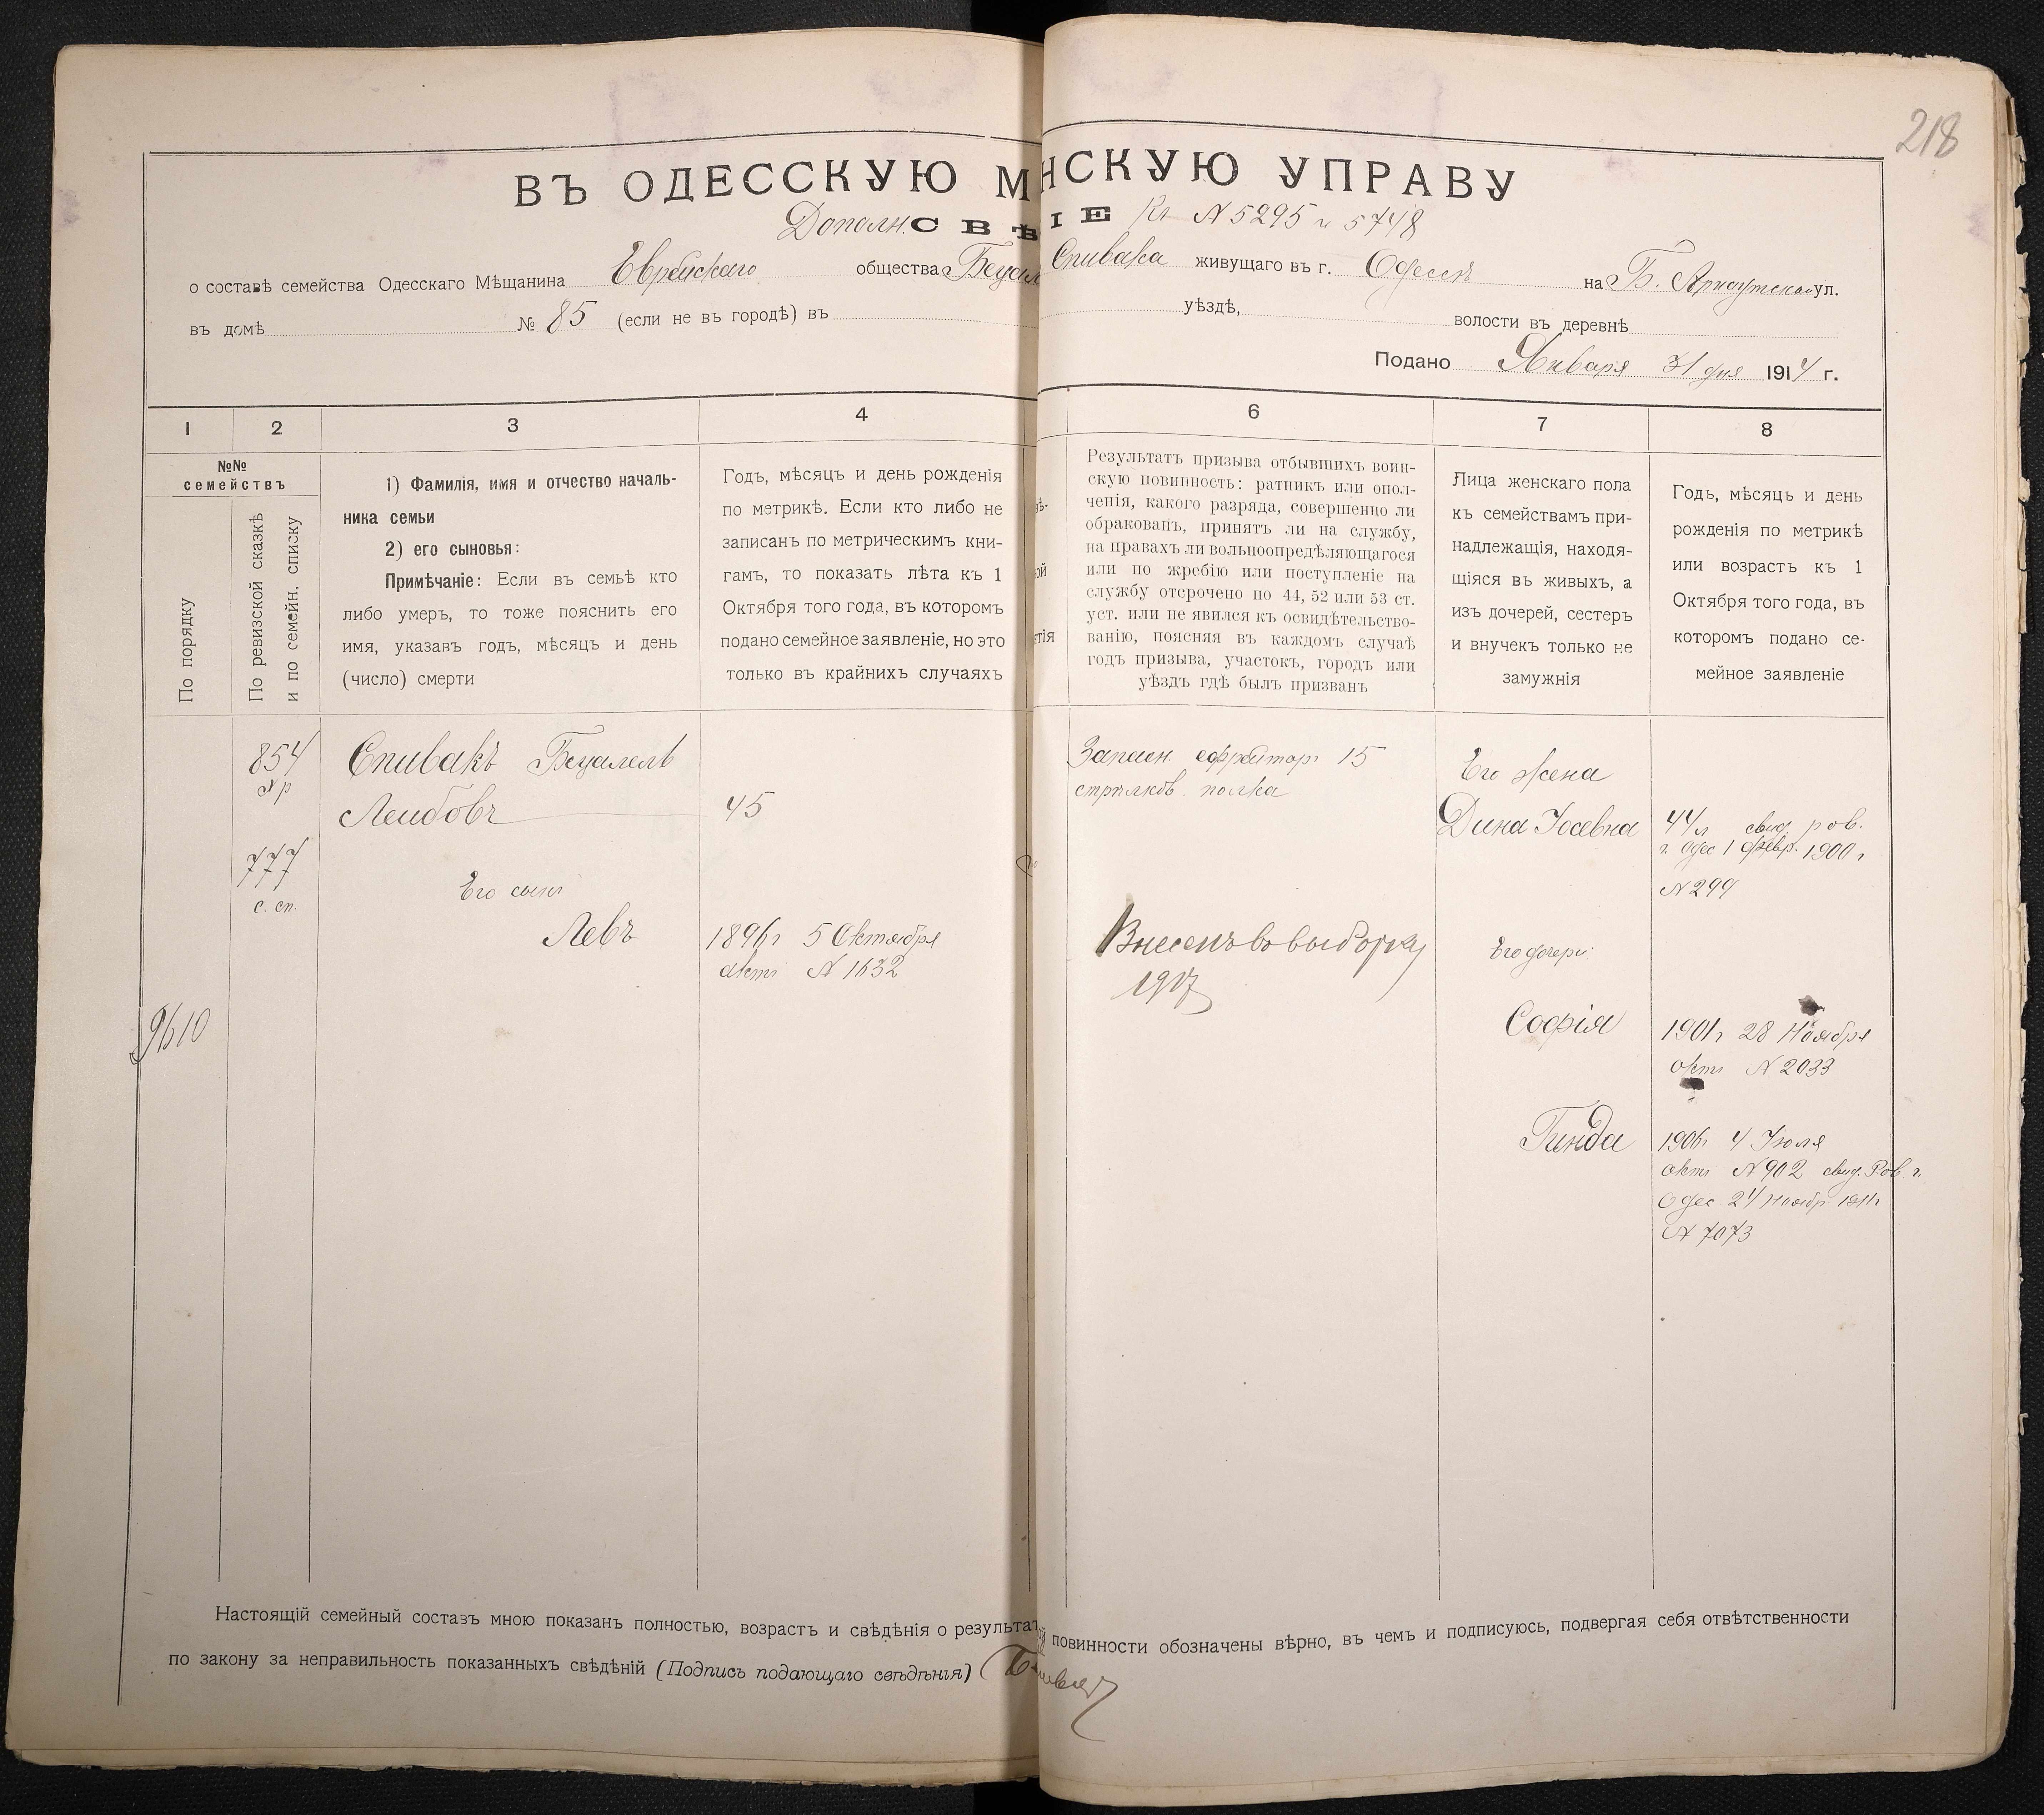 218
ВЪ ОДЕССКУЮ М НСКУЮ УПРАВУ
Дополн. СВѢ ІЕ Къ № 5295 и 5748
о составѣ семейства Одесскаго Мѣщанина Еврейскаго общества Бецал Спивака живущаго въ г. Одессѣ на Б. Арнаутской ул.
въ домѣ № 85 (если не въ городѣ) въ уѣздѣ, волости въ деревнѣ
Подано Января 31 дня 1914 г.
1
2
3
4
6
7
8
№№
семействъ
По порядку
По ревизской сказкѣ
и по семейн. списку
1) Фамилія, имя и отчество началь-
ника семьи
2) его сыновья:
Примѣчаніе: Если въ семьѣ кто
либо умеръ, то тоже пояснить его
имя, указавъ годъ, мѣсяцъ и день
(число) смерти
Годъ, мѣсяцъ и день рожденія
по метрикѣ. Если кто либо не
записанъ по метрическимъ кни-
гамъ, то показать лѣта къ 1
Октября того года, въ которомъ
подано семейное заявленіе, но это
только въ крайнихъ случаяхъ
ѣ-
ой
тія
Результатъ призыва отбывшихъ воин-
скую повинность: ратникъ или опол-
ченія, какого разряда, совершенно ли
обракованъ, принятъ ли на службу,
на правахъ ли вольноопредѣляющагося
или по жребію или поступленіе на
службу отсрочено по 44, 52 или 53 ст.
уст. или не явился къ освидѣтельство-
ванію, поясняя въ каждомъ случаѣ
годъ призыва, участокъ, городъ или
уѣздъ гдѣ былъ призванъ
Лица женскаго пола
къ семействамъ при-
надлежащія, находя-
щіяся въ живыхъ, а
изъ дочерей, сестеръ
и внучекъ только не
замужнія
Годъ, мѣсяцъ и день
рожденія по метрикѣ
или возрастъ къ 1
Октября того года, въ
которомъ подано се-
мейное заявленіе
9610
854
№ р
777
с. сп.
Спивакъ Бецалель
Леибовъ
Его сынъ
Левъ
45
1896 г 5 Октября
актъ № 1632
Запасн. ефрейторъ 15
стрѣлков. полка
Внесенъ въ выборку
1917
Его жена
Дина Іосевна
Его дочери:
Софія
Гинда
44 л свид. рав.
г. Одес 1 февр. 1900 г
№ 299
1901 г 28 Ноября
актъ № 2033
1906 г 4 Іюля
актъ № 902 свид. Рав. г.
Одес 24 Ноябр. 1911 г
№ 7073
Настоящій семейный составъ мною показанъ полностью, возрастъ и свѣдѣнія о результат ой повинности обозначены вѣрно, въ чемъ и подписуюсь, подвергая себя отвѣтственности
по закону за неправильность показанныхъ свѣдѣній (Подпись подающаго свѣдѣнія)